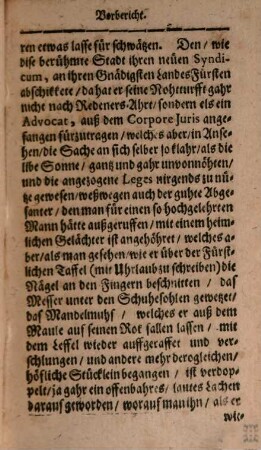 Vorbericht.
ren etwas lasse für schwätzen. Den / wie
dise berühmte Stadt ihren neüen Syndi-
cum, an ihren Gnädigsten LandesFürsten
abschikkete / da hat er seine Nohtturfft gahr
nicht nach Redeners-Ahrt / sondern els ein
Advocat, auß dem Corpore Juris ange-
fangen fürzutragen / welches aber / in Anse-
hen / die Sache an sich selber so klahr / als die
libe Sonne / gantz und gahr unvonnöhten /
und die angezogene Leges nirgends zu nü-
tze gewesen / weßwegen auch der guhte Abge-
santer / den man für einen so hochgelehrten
Mann hätte außgeruffen / mit einem heim-
lichen Gelächter ist angehöhret / welches a-
ber / als man gesehen / wie er über der Fürst-
lichen Taffel (mit Uhrlaub zu schreiben) die
Nägel an den Fingern beschnitten / das
Messer unter den Schuhesohlen gewetzet /
das Mandelmuhß / welches er auß dem
Maule auf seinen Rok fallen lassen / mit
dem Leffel wieder auffgeraffet und ver-
schlungen / und andere mehr derogleichen /
höfliche Stücklein begangen / ist verdop-
pelt / ja gahr ein offenbahres / lautes Lachen
darauß geworden / worauf man ihn / als er
wie-